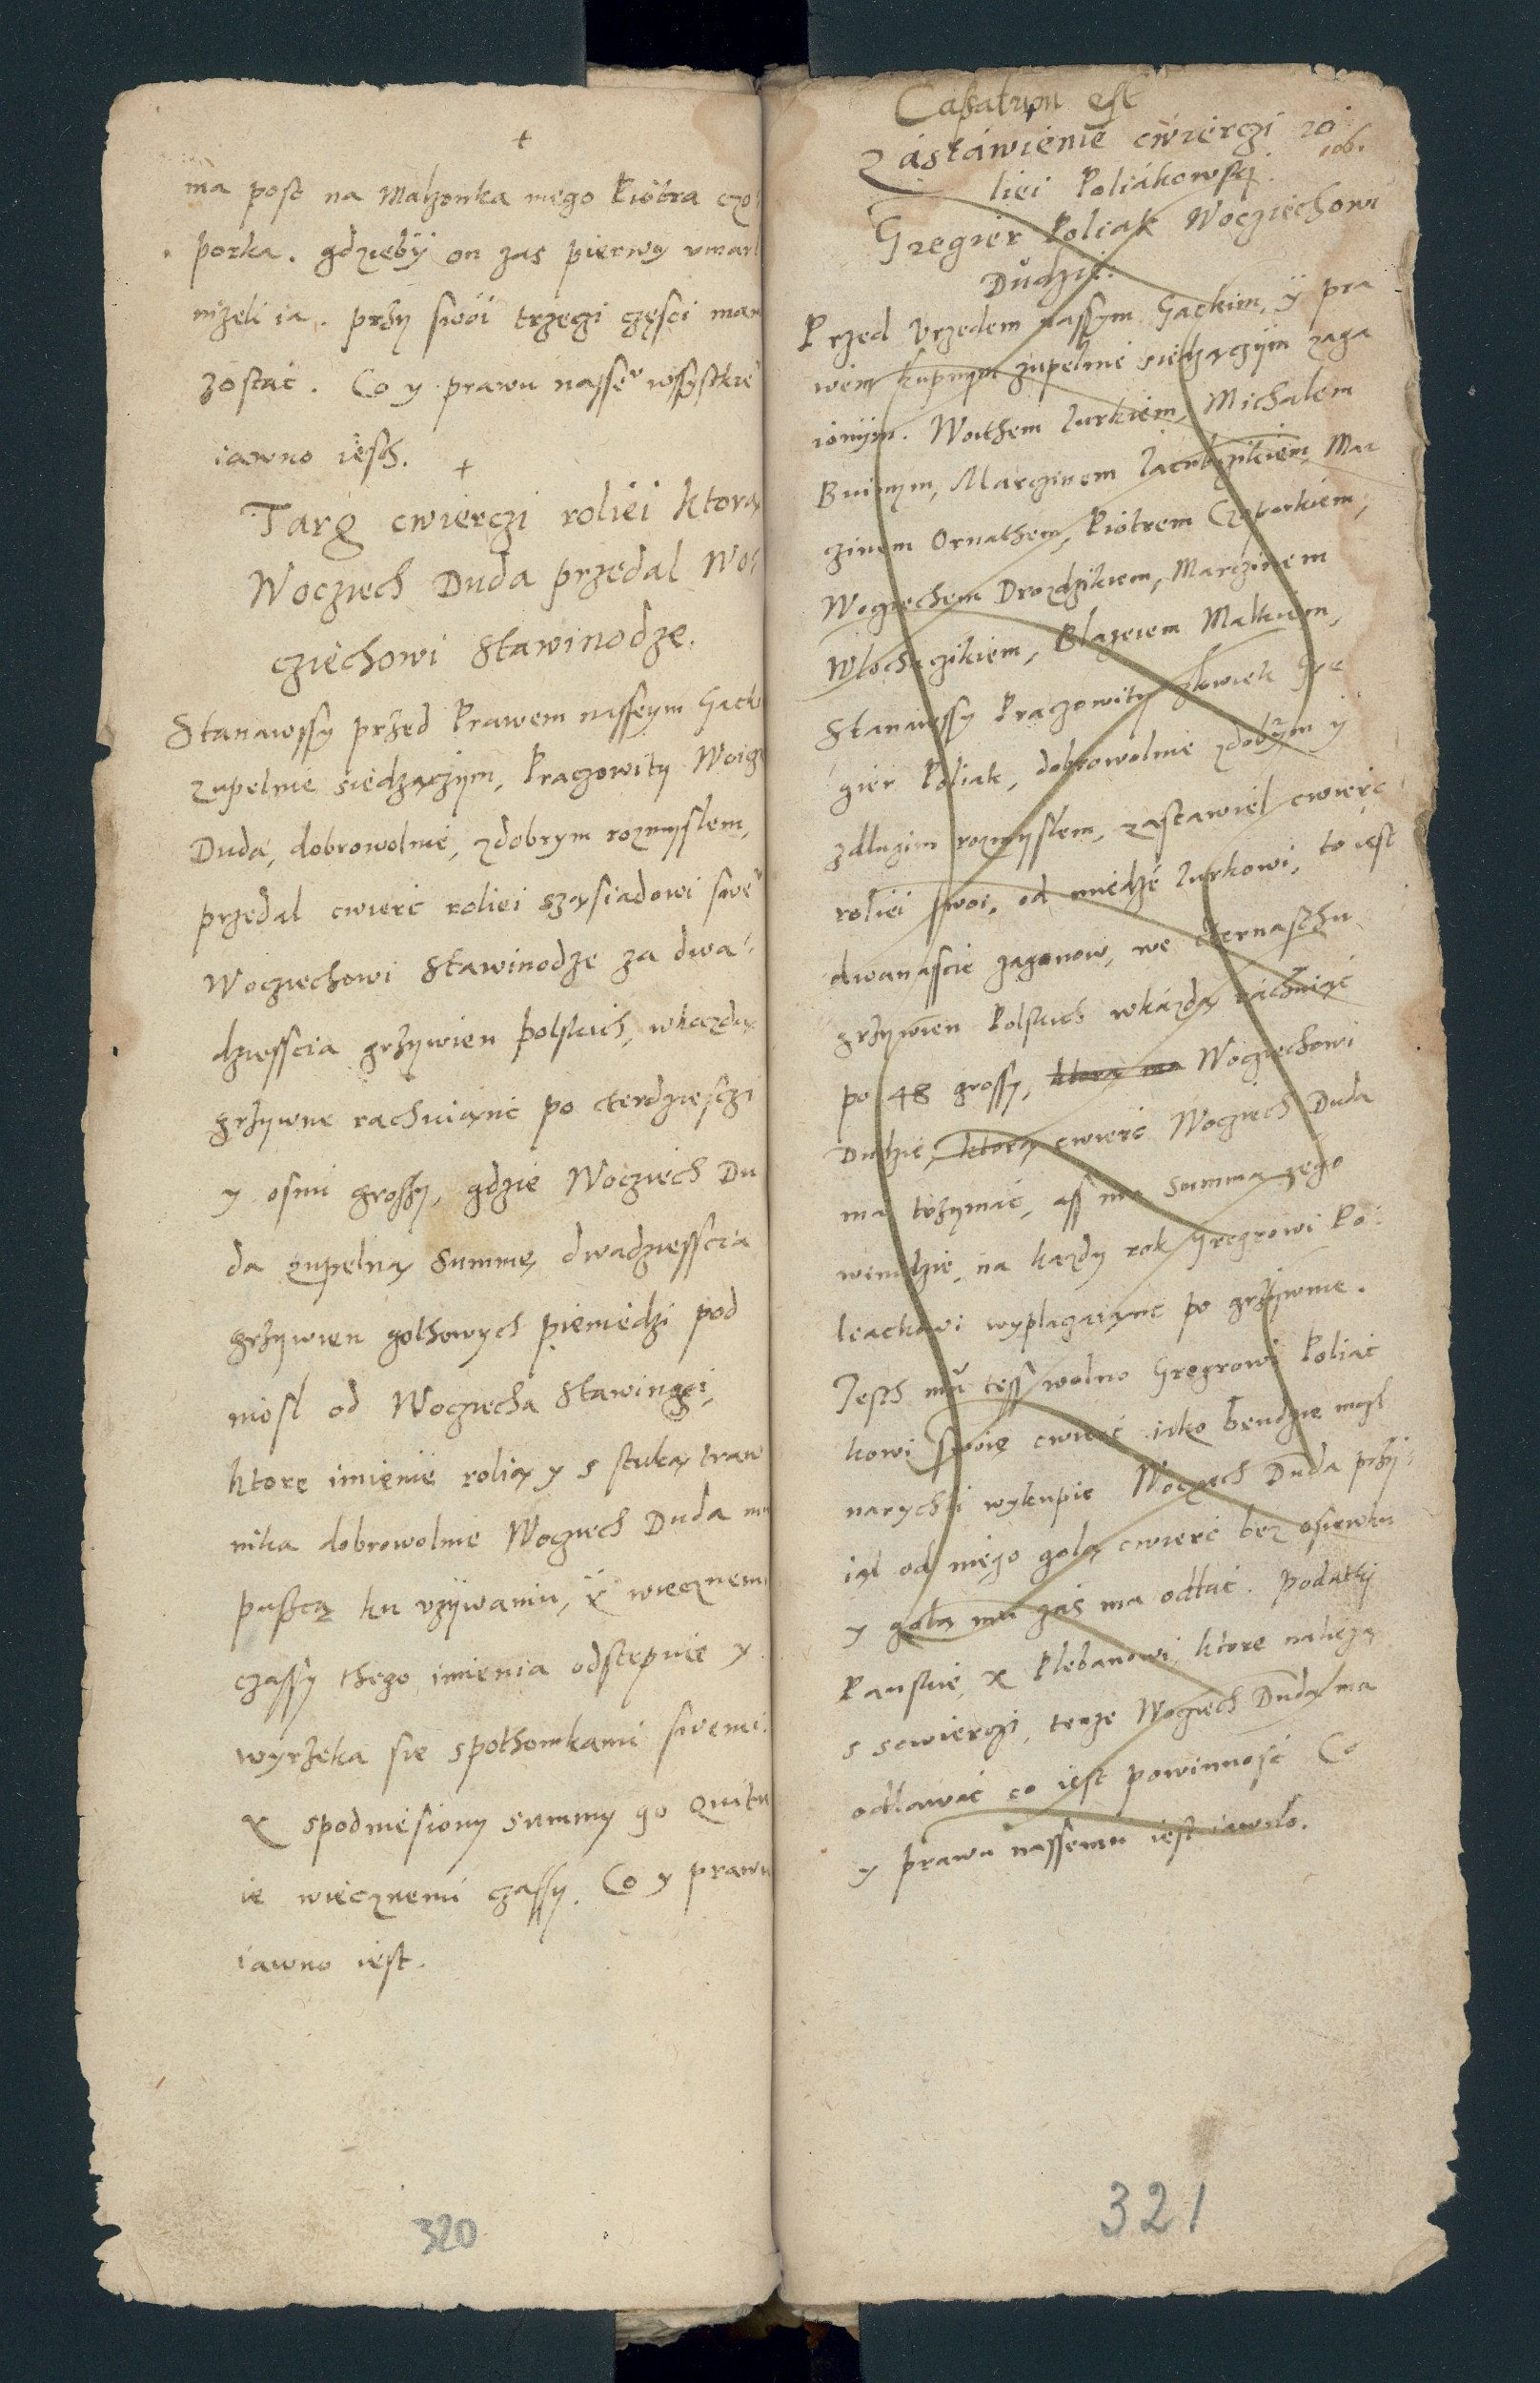 +
ma post na Malzonka mego Piotra czo
porka. gdzieby on zas pierwy vmarl
nizeli ia. przy swoi trzeczi części mam
zostac. Co y prawu nassemu wssystkiemu
iawno iesth.
+
Targ cwierczi roliei ktorą
Wocziech Duda przedal Wo
cziechowi Stawinodze.
Stanawssy przed Prawem nassym Gack
zupelnie siedzączym, Praczowity Woicz
Duda, dobrowolnie, zdobrym rozmyslem,
przedal cwierc roliei szysiadowi swe
Wocziechowi Stawinodze za dwa
dziesscia grzywien polskich, wkazdą
grzywne rachuiąnc po cterdziesczi
y osmi groszy, gdzie Wocziech Du
da zupelną Summę dwadziesscia
grzywien gothowych pieniedzi pod
niosl od Wocziecha Stawinogi,
ktore imienie rolią y s stuką traw
nika dobrowolnie Wocziech Duda mu
puscą ku vzywaniu, y wiecznemi
czassy thego imienia odstepuie y
wyrzeka sie spothomkami swemi.
y spodniesiony summy go Quitu
ie wiecznemi czassy. Co y prawu
iawno iest.
320
Cassatum est
Zastawienie cwierczi ro
liei Poliakowski.
Gregier Poliak Wocziechowi
Dudzie.
Przed Vrzedem nassym Gackim, y pra
wem kupnym zupelnie siedzączym zaga
ionym. Woithem Zurkiem, Michalem
Buinym, Marczinem Jacubczikiem, Mar
czinem Ornathem, Piotrem Czoporkiem,
Wocziechem Drozdzikiem, Marczinem
Wlochczikiem, Blazeiem Malkiem,
Stanawssy Praczowity czlowiek Gre
gier Poliak, dobrowolnie zdobrym y
zdlugim rozmyslem, zastawiel cwierc
roliei swoi, od miedze Zurkowi, to iest
dwanascie zagonow, we cternasthu
grzywien Polskich wkazdą rachuiąc
po 48 grossy, ktorą ma Wocziechowi
Dudzie, ktorą cwierc Wocziech Duda
ma trzymac, ass mu Summa iego
winidzie, na kazdy rok Gregrowi Po
leackowi wyplacaiąnc po grzywnie.
Jesth mu tess wolno Gregrowi Poliac
kowi swoię cwierc iako bendzie mogl
narychli wykupic Wocziech Duda przy
iąl od niego golą cwierc bez osiewku
y golą mu zas ma oddac. Podatky
Panskie, y Plebanowi, ktore naliezą
s scwierczi, tenze Wocziech Duda ma
oddawac co iest powinnosc Co
y prawu nassemu iest iawno.
321